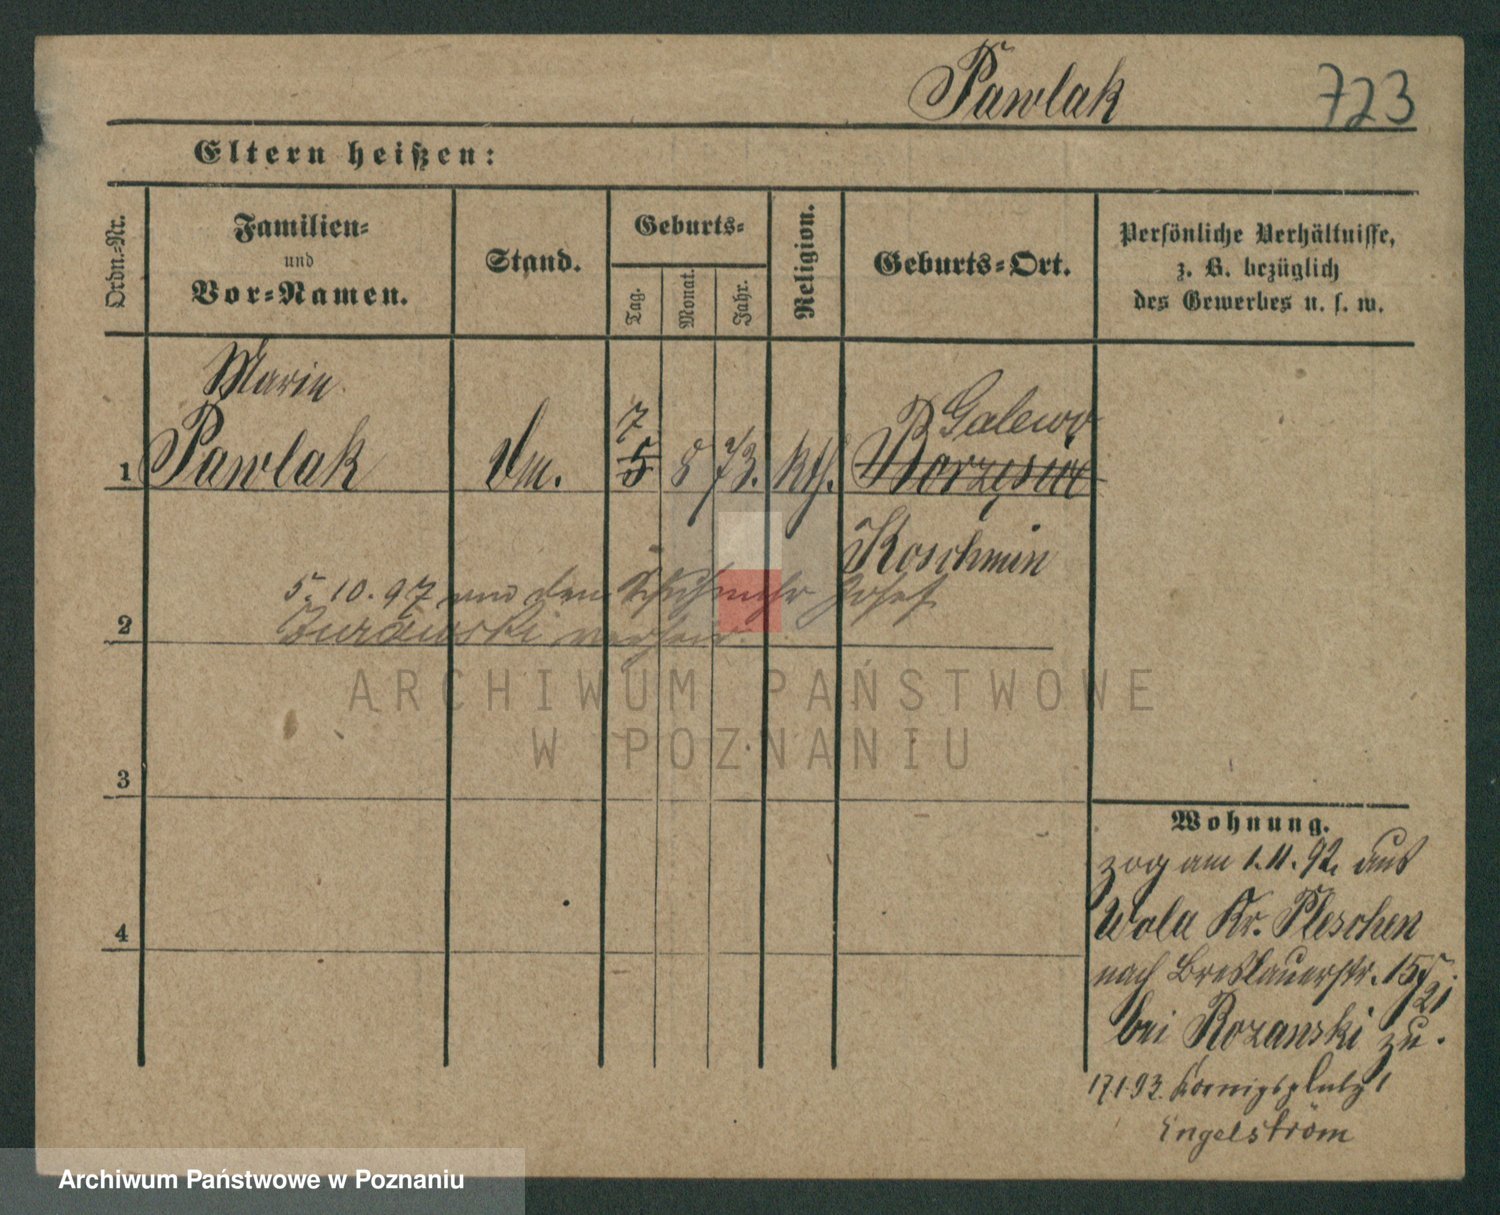 Pawlak 723
Eltern heißen:
Ordn.-Nr.
Familien-
und
Vor-Namen.
Stand.
Geburts-
Tag.
Monat.
Jahr.
Religion.
Geburts-Ort.
Persönliche Verhältnisse,
z. B. bezüglich
des Gewerbes u. s. w.
Marie
1 Pawlak Dm. 5 8 73. kth. Borzęcice
7
Galewo
Koschmin
5.10.97 den Josef
2 Zurawski
3
4
Wohnung.
zog am 1.11.92 aus
Wola Kr. Pleschen
nach Breslauerstr. 15
21
bei Rozanski zu.
17.1.93. Koenigsplatz 1
Engelström
ARCHIWUM PAŃSTWOWE
W POZNANIU
Archiwum Państwowe w Poznaniu